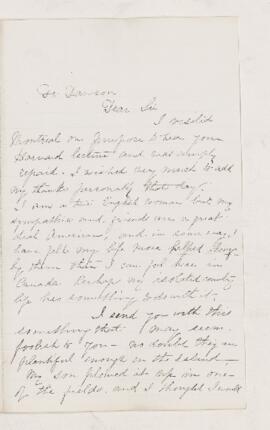 Dr Dawson
Dear Sir
I visited
Montreal on purpose to hear your
Harvard lecture and was amply
repaid. I wished very much to add
my thanks personally that day.
I am a true English woman but my
sympathies and friends are a great
deal American, and in some ways
I can feel my life more helped
by them than I can feel here in
Canada Perhaps my isolated country
life has something to do with it.
I send you with this
something that may seem
foolish to you - no doubt they are
plentiful enough on the island -
My son plowed it up in one
of the fields, and I thought I would